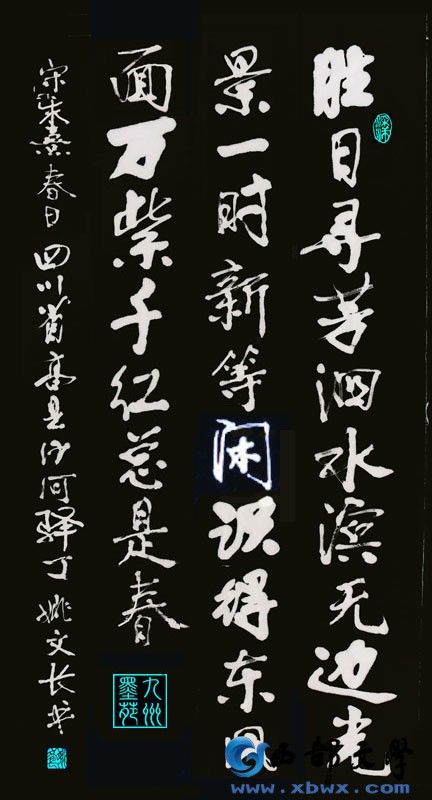 胜日寻芳泗水滨无边光
景一时新等闲识得东风
面万紫千红总是春
宋朱熹春日四川省高县沙河驿丁姚文长书
九州墨苑
西部文学
www.xbwx.com